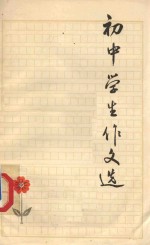 初中学生作文选